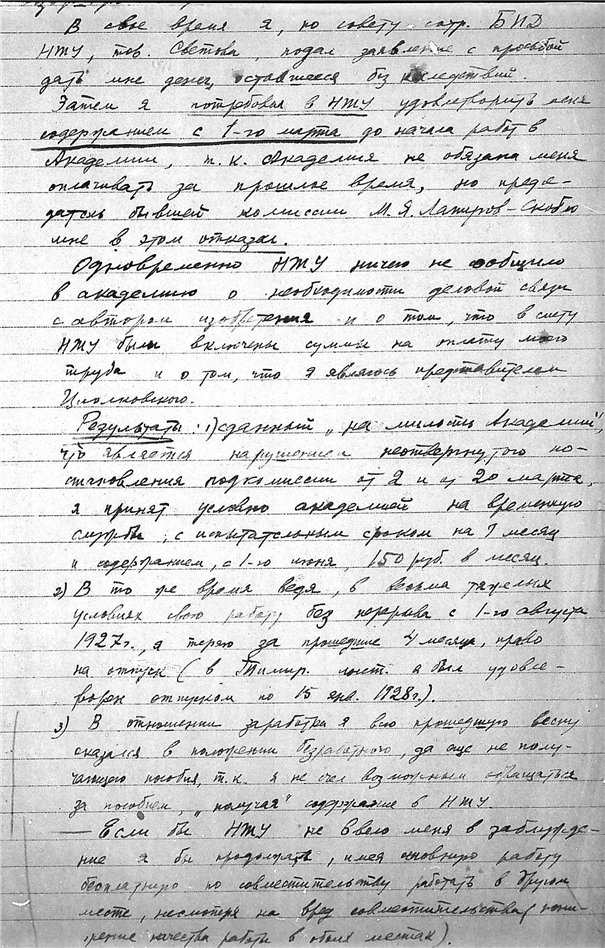 В свое время я, по совету сотр. БИД
НТУ, тов. Светова, подал заявление с просьбой
дать мне денег, оставшееся без последствий.
Затем я потребовал в НТУ удовлетворить меня
содержанием с 1-го марта до начала работ в
Академии, т.к. Академия не обязана меня
оплачивать за прошлое время, но предсе-
датель бывшей комиссии М.Я. Лапиров-Скобло
мне в этом отказал.
Одновременно НТУ ничего не сообщило
в академию о необходимости деловой связи
с автором изобретения и о том, что в смету
НТУ были включены суммы на оплату моего
труда и о том, что я являюсь представителем
Циолковского.
Результаты: 1) сданный „на милость Академии",
что является нарушением неотвергнутого по-
становления подкомиссии от 2 и 20 марта,
я принят условно академией на временную
службу, с испытательным сроком на 1 месяц
и содержанием, с 1-го июня, 150 руб. в месяц.
2) В то же время ведя, в весьма тяжелых
условиях свою работу без перерыва с 1-го августа
1927 г., я теряю за прошедшие 4 месяца, право
на отпуск (в Тимир. инст. я был удовле-
творен отпуском по 15 янв. 1928 г.).
3) В отношении заработка я всю прошедшую весну
оказался в положении безработного, да еще не полу-
чающего пособия, т.к. я не счел возможным обращаться
за пособием, „получая" содержание в НТУ.
— Если бы НТУ не ввело меня в заблужде-
ние я бы продолжал, имея основную работу
бесплатную по совместительству работать в другом
месте, несмотря на вред совместительства (пони-
жение качества работы в обоих местах).